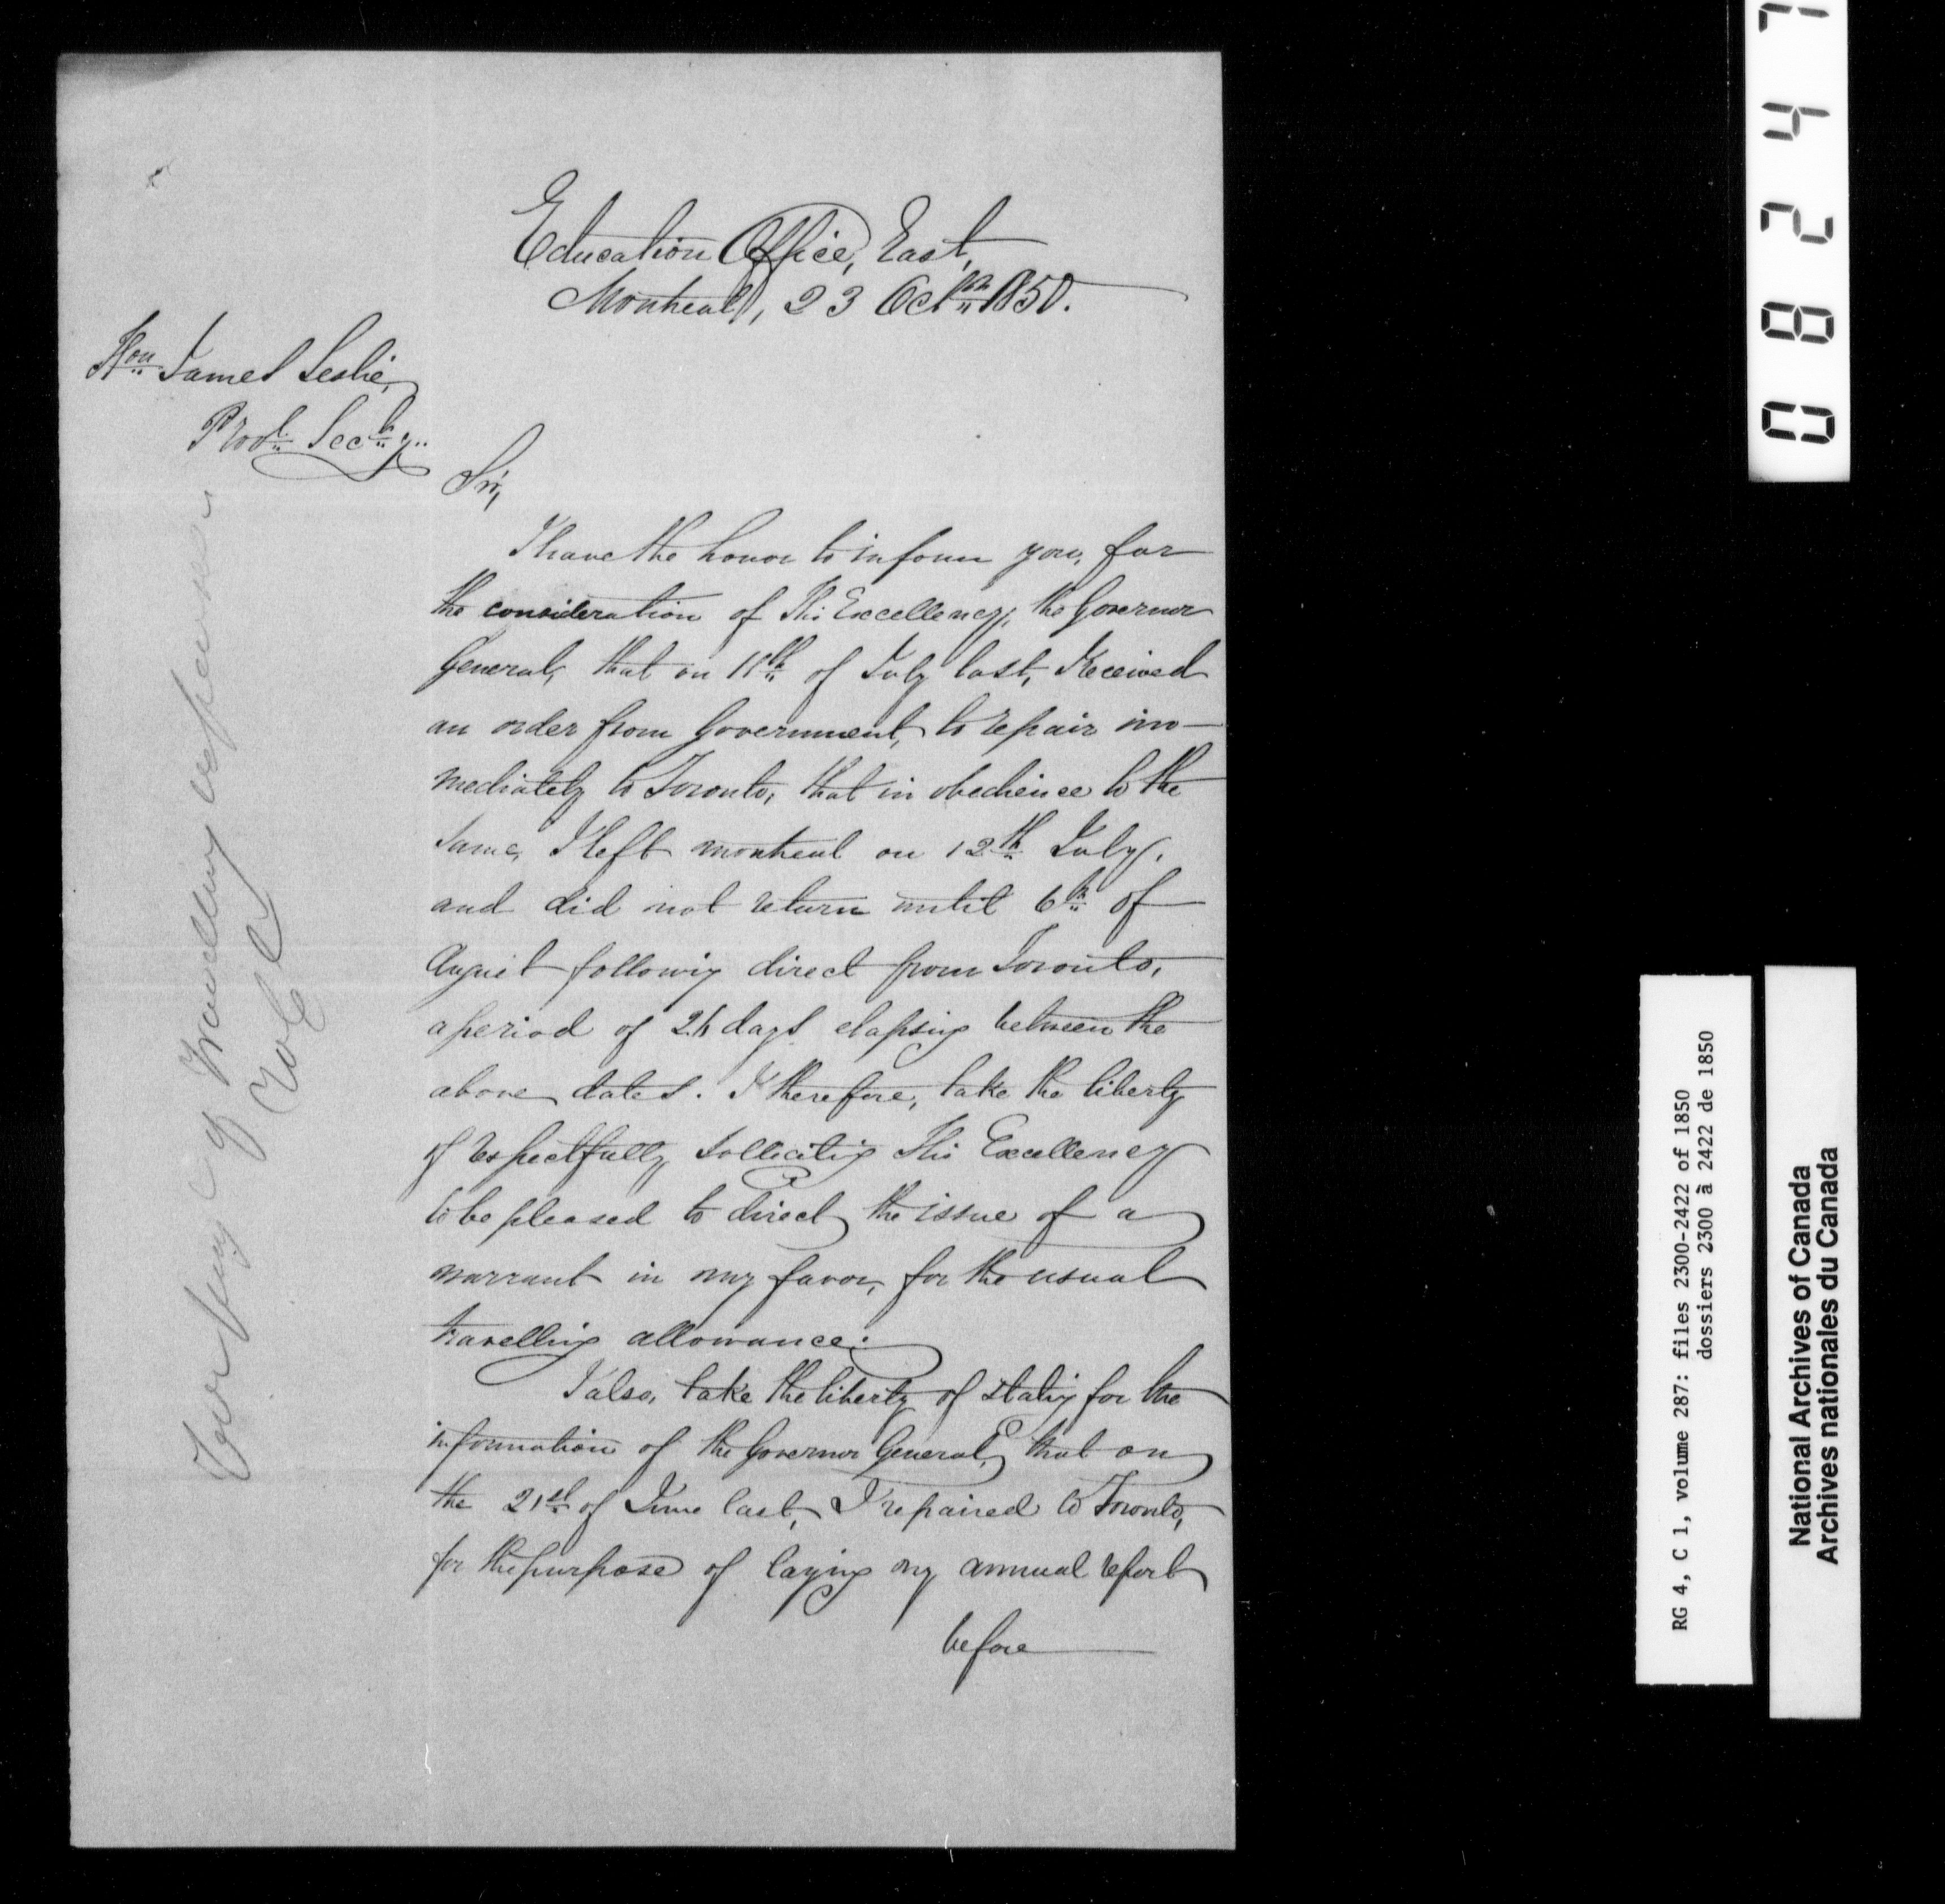 Education Office, East,
Montreal, 23 Octber 1850.
Hon James Leslie,
Provl Secty
Sir,
I have the honor to inform you, for
the consideration of His Excellency, the Governor
General, that on 11th of July last, I received
an order from Government, to repair im-
mediately to Toronto, that in obedience to the
same, I left Montreal on 12th July,
and did not return until 6th of
August following direct from Toronto,
a period of 26 days elapsing between the
above dates. I therefore, take the liberty
of respectfully solliciting His Excellency
to be pleased to direct the issue of a
warrant in my favor, for the usual
travelling allowance.
I also, take the liberty of stating for the
information of the Governor General, that on
the 21st of June last, I repaired to Toronto,
for the purpose of laying my annual report
before
of Travelling expenses
08247
RG 4, C 1, volume 287: files 2300-2422 of 1850
dossiers 2300 à 2422 de 1850
National Archives of Canada
Archives nationales du Canada